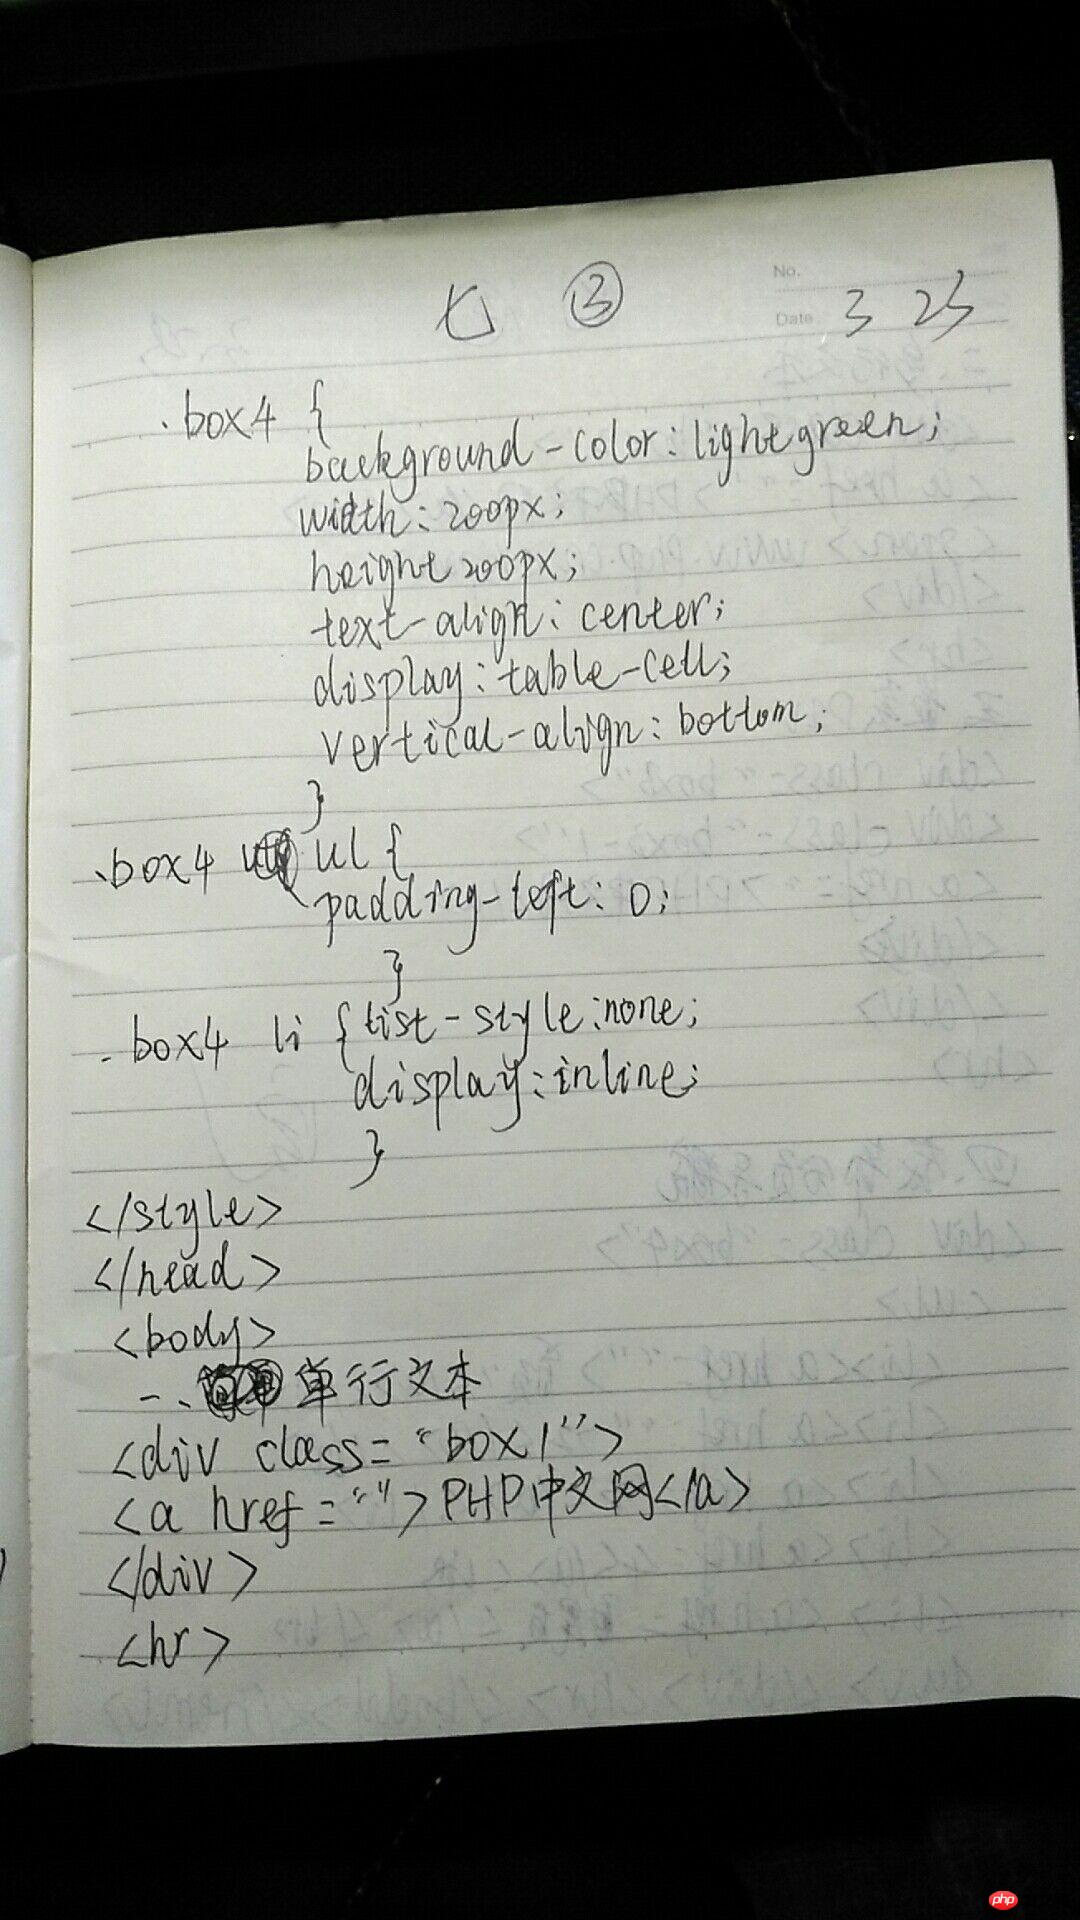 七 ③
No.
Date 3 23
.box4 {
background-color:lightgreen;
width:200px;
height200px;
text-align:center;
display:table-cell;
vertical-align:bottom;
}
.box4 ul{
padding-left:0;
}
.box4 li {list-style:none;
display:inline;
}
</style>
</head>
<body>
一、单行文本
<div class="box1">
<a href="">PHP中文网</a>
</div>
<hr>
php